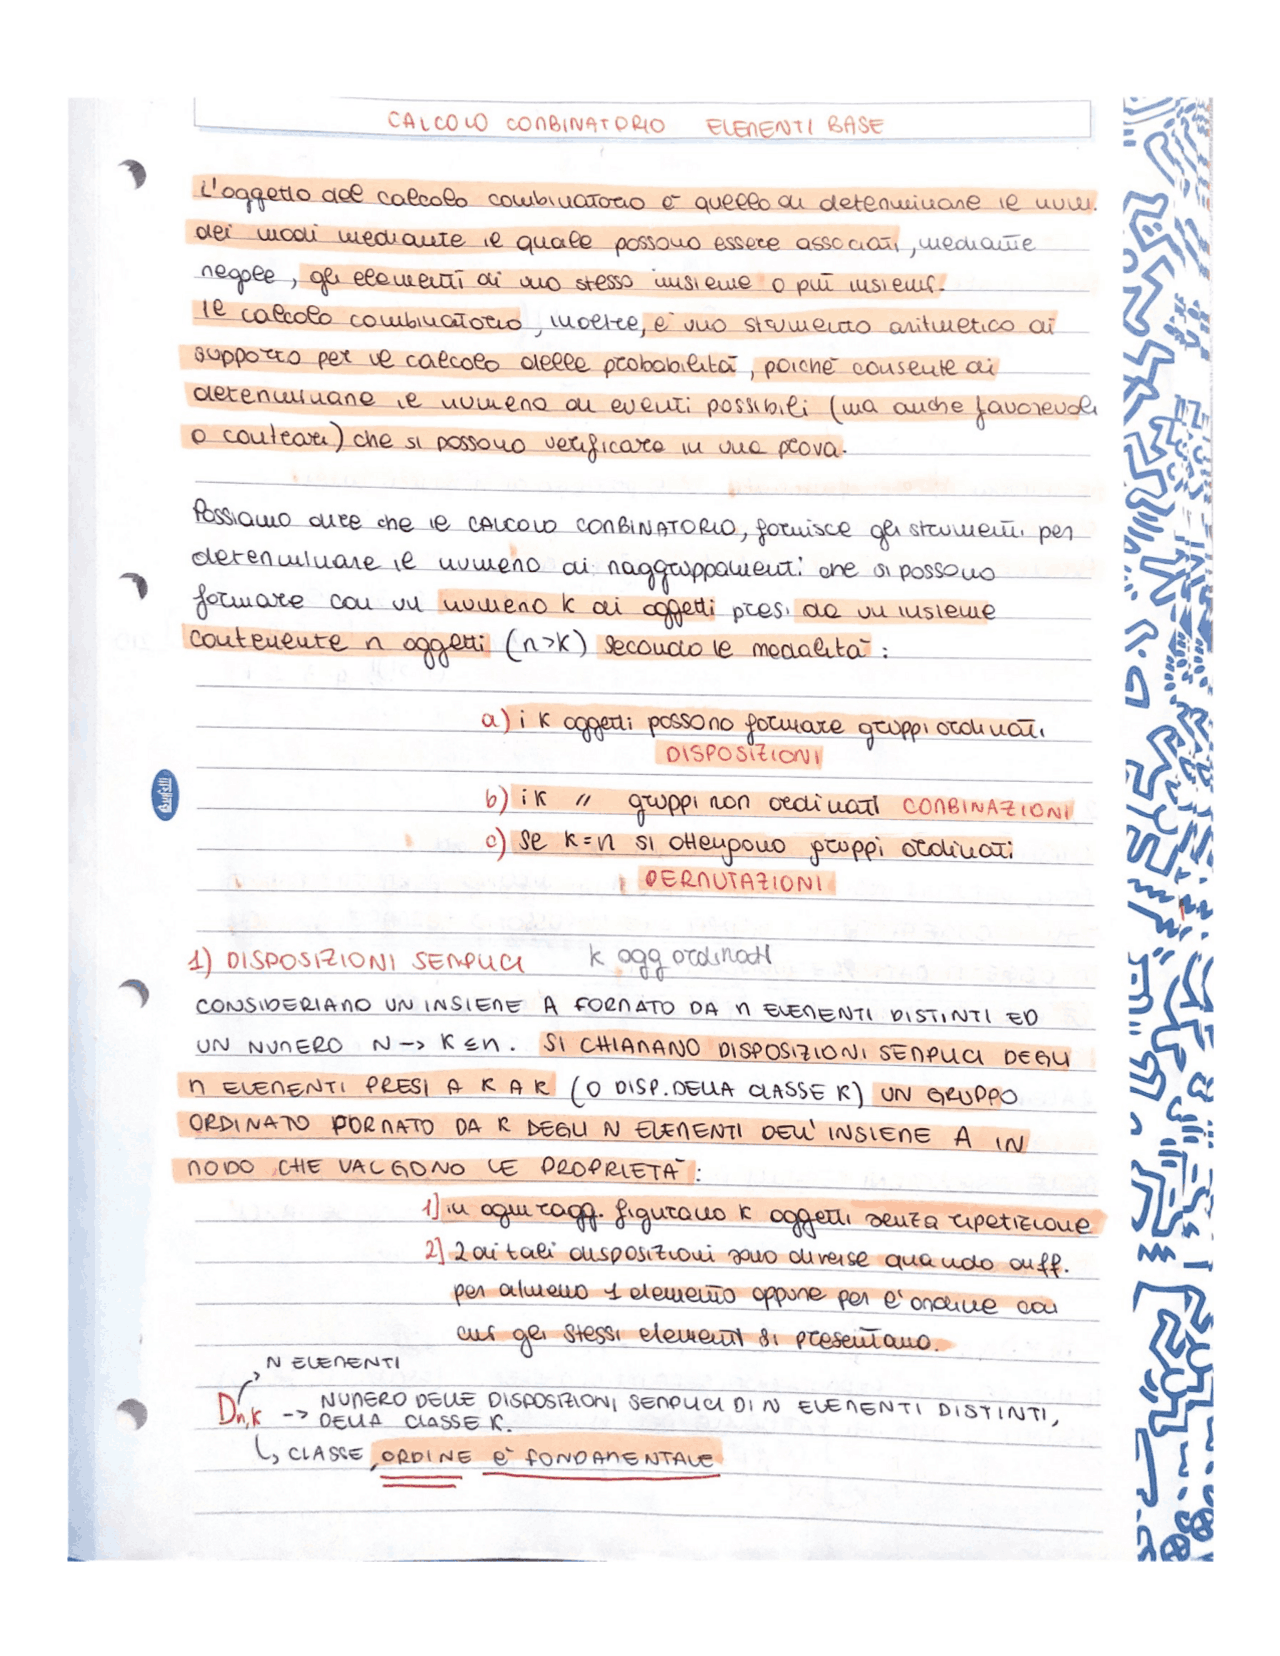 CALCOLO COMBINATORIO ELEMENTI BASE
L'oggetto del calcolo combinatorio è quello di determinare il num.
dei modi mediante il quale possono essere associati, mediante
regole, gli elementi di uno stesso insieme o più insiemi.
Il calcolo combinatorio, inoltre, è uno strumento aritmetico di
supporto per il calcolo delle probabilità, poiché consente di
determinare il numero di eventi possibili (ma anche favorevoli
o contrari) che si possono verificare in una prova.
Possiamo dire che il CALCOLO COMBINATORIO, fornisce gli strumenti per
determinare il numero di raggruppamenti che si possono
formare con un numero k di oggetti presi da un insieme
contenente n oggetti (n>k) secondo le modalità:
a) i k oggetti possono formare gruppi ordinati.
DISPOSIZIONI
b) i k " gruppi non ordinati COMBINAZIONI
c) Se k=n si ottengono gruppi ordinati
PERMUTAZIONI
Buffetti
1) DISPOSIZIONI SEMPLICI k ogg ordinati
CONSIDERIAMO UN INSIEME A FORMATO DA n ELEMENTI DISTINTI ED
UN NUMERO N -> K ≤ n. SI CHIAMANO DISPOSIZIONI SEMPLICI DEGLI
n ELEMENTI PRESI A K A K (O DISP. DELLA CLASSE K) UN GRUPPO
ORDINATO FORMATO DA K DEGLI N ELEMENTI DELL'INSIEME A IN
MODO CHE VALGONO LE PROPRIETÀ:
1] in ogni ragg. figurano k oggetti senza ripetizione
2] 2 di tali disposizioni sono diverse quando diff.
per almeno 1 elemento oppure per l'ordine con
cui gli stessi elementi si presentano.
N ELEMENTI
Dn,k -> NUMERO DELLE DISPOSIZIONI SEMPLICI DI N ELEMENTI DISTINTI,
DELLA CLASSE K.
↳ CLASSE, ORDINE è FONDAMENTALE